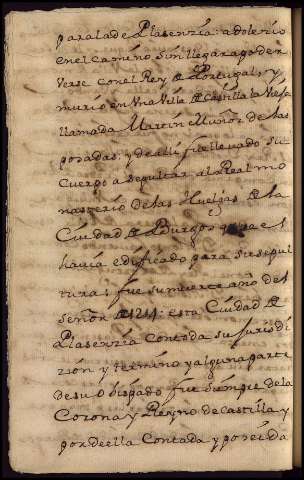 para la de Plasenzia: adolezio
en el camino sin llegar a poder
verse con el Rey de Portugal, y
murio en Vna Villa de Castilla la Vieja
llamada Martin Muñoz de las
posadas: y de alli fue lleuado su
Cuerpo a sepultar al a Real mo
nasterio de las Huelgas de la
Ciudad de Burgos que el
hauia edificado para su sepul
tura; fue su muerte año del
señor de 1214: esta Ciudad de
Plasenzia Con toda su Jurisdi
zión y termino y alguna parte
de su obispado fue siempre de la
Corona y Reyno de Castilla y
por de ella Contada y poseida